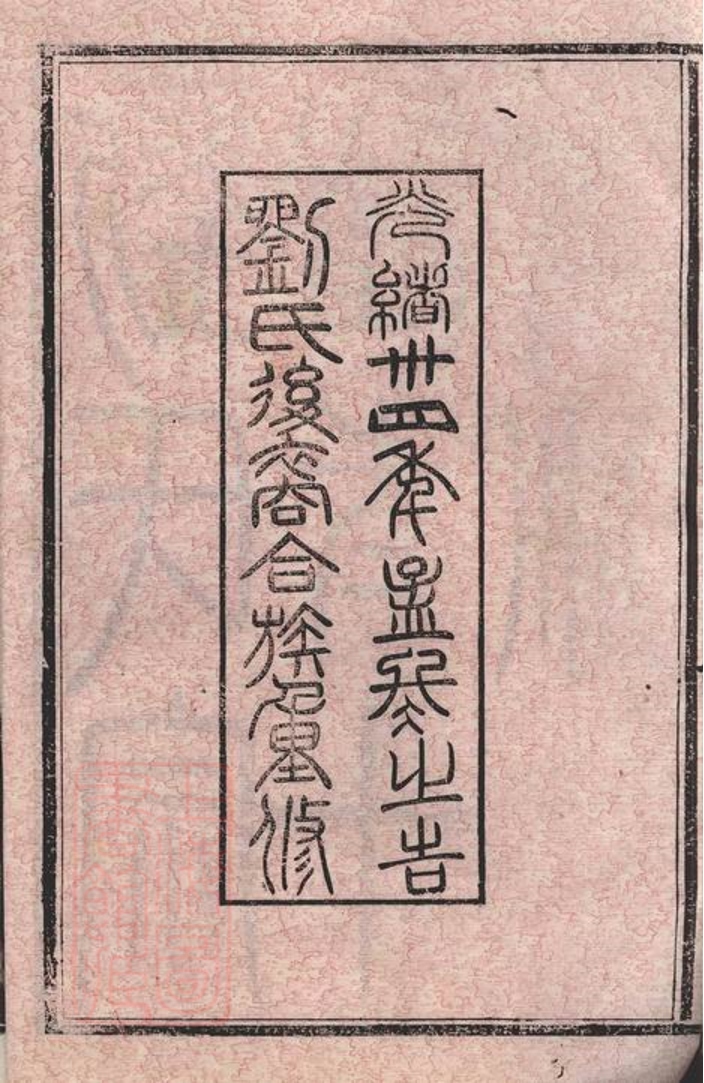 光緒卅四年孟冬之吉
劉氏後裔合族重修